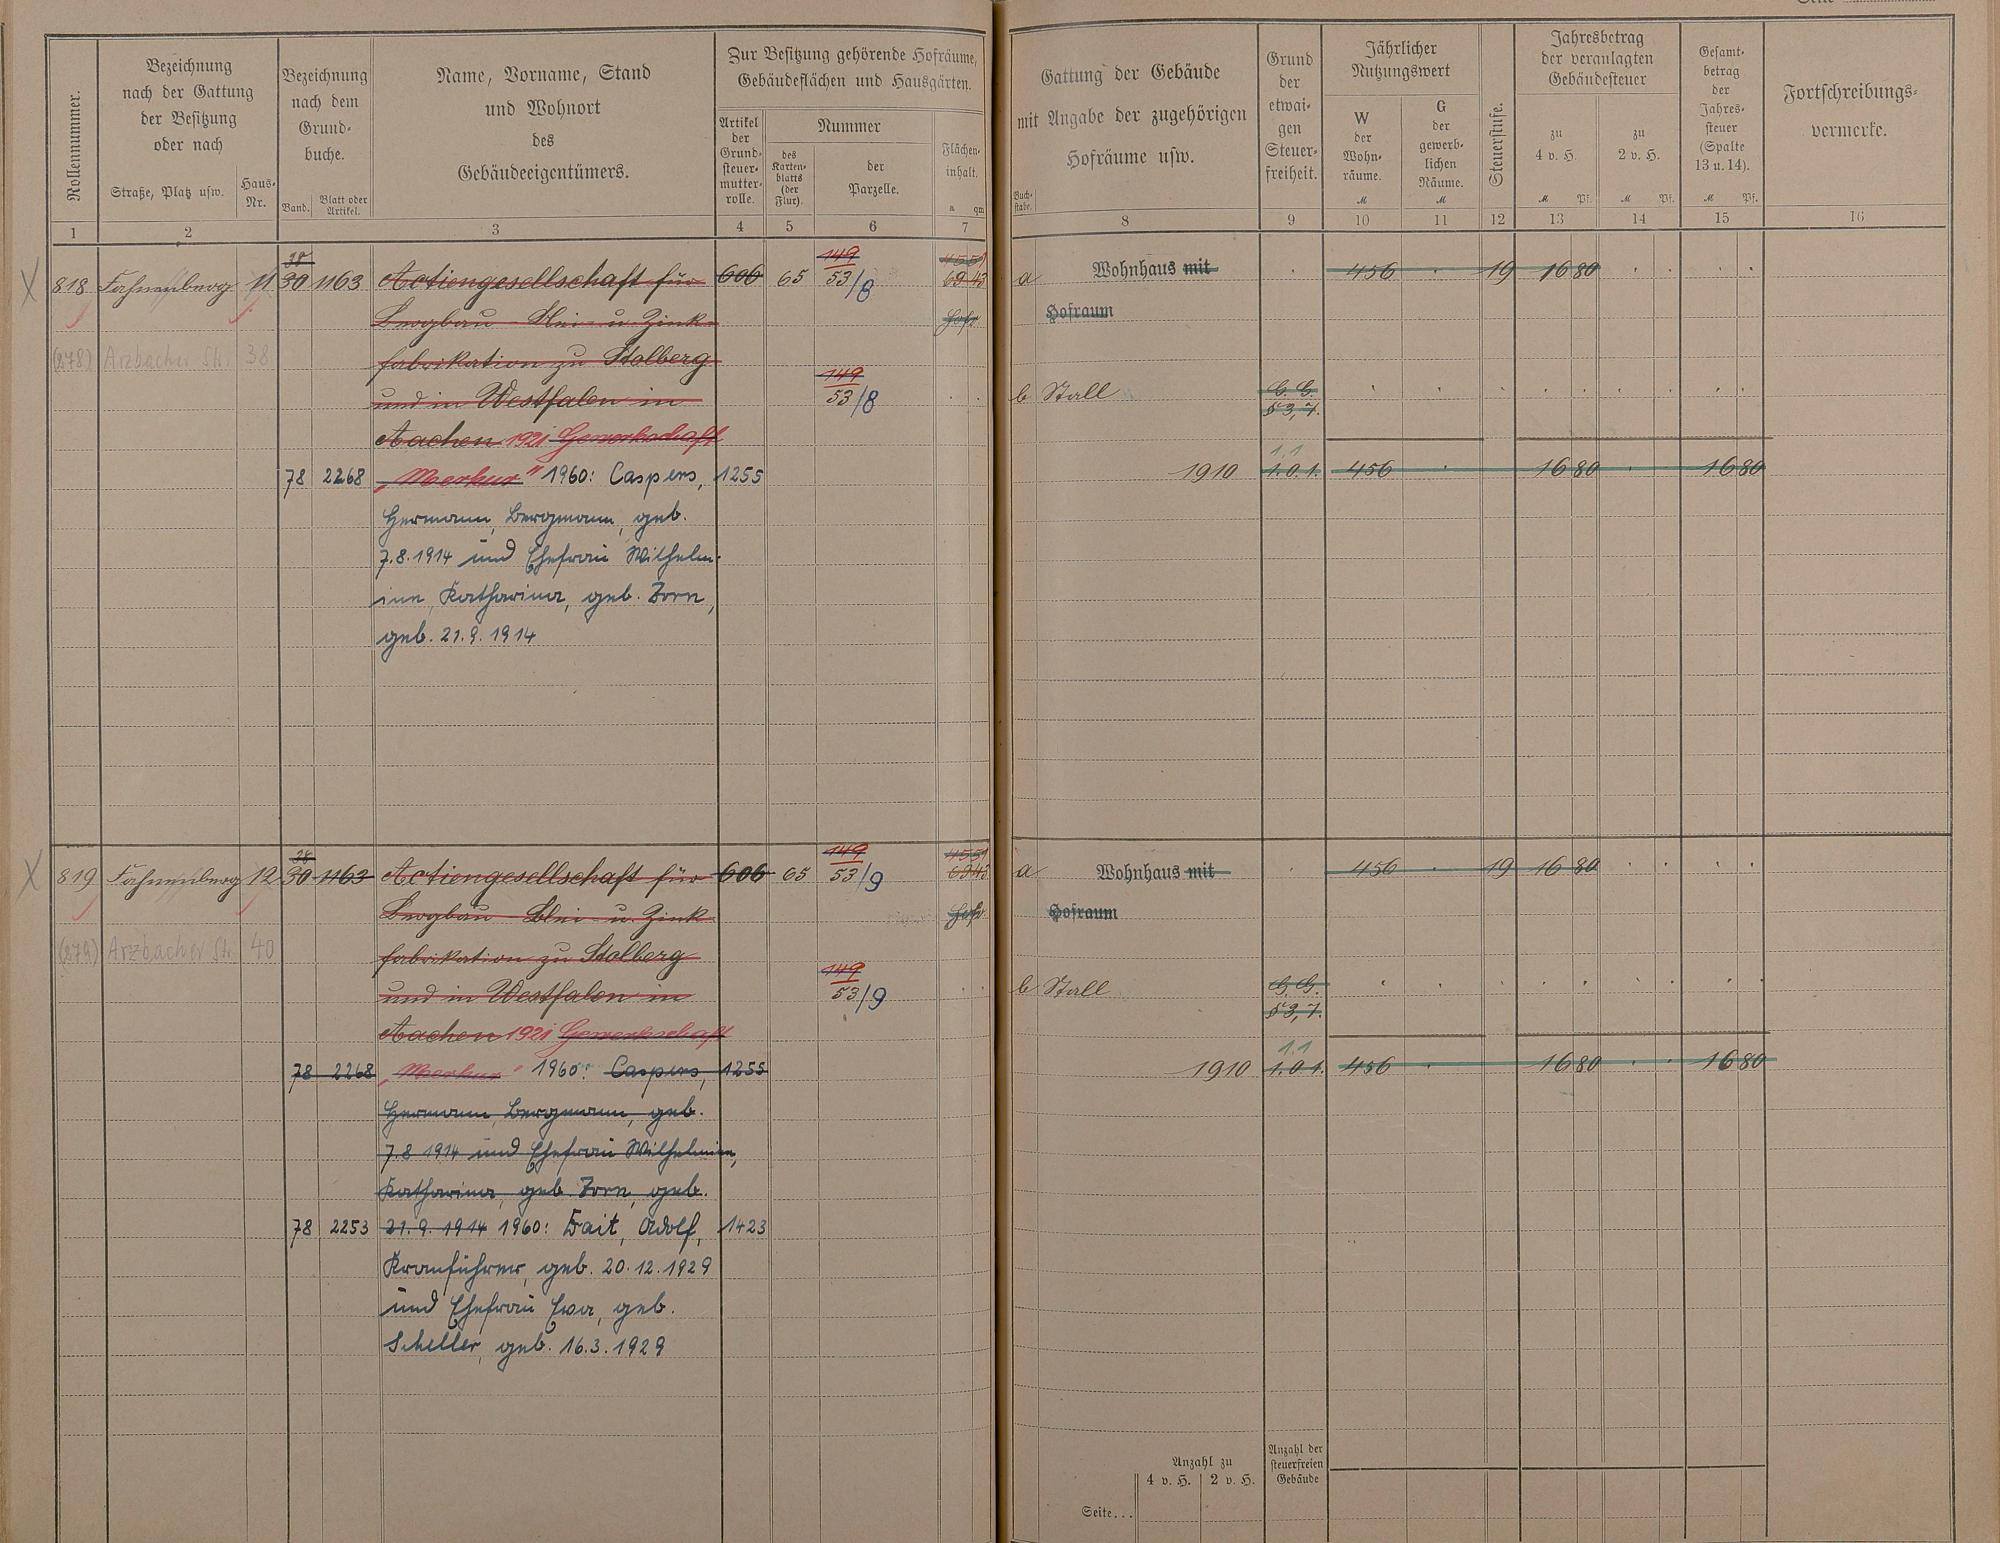 Seite
Rollennummer.
Bezeichnung
nach der Gattung
der Besitzung
oder nach
Straße, Platz usw.
Haus-
Nr.
Bezeichnung
nach dem
Grund-
buche.
Band.
Blatt oder
Artikel.
Name, Vorname, Stand
und Wohnort
des
Gebäudeeigentümers.
Zur Besitzung gehörende Hofräume,
Gebäudeflächen und Hausgärten.
Artikel
der
Grund-
steuer-
mutter-
rolle.
Nummer
des
Karten-
blatts
(der
Flur).
der
Parzelle.
Flächen-
inhalt.
a qm
Gattung der Gebäude
mit Angabe der zugehörigen
Hofräume usw.
Buch-
stabe.
Grund
der
etwai-
gen
Steuer-
freiheit.
Jährlicher
Nutzungswert
W
der
Wohn-
räume.
M
G
der
gewerb-
lichen
Räume.
M
Steuerstufe.
Jahresbetrag
der veranlagten
Gebäudesteuer
zu
4 v. H.
M Pf.
zu
2 v. H.
M Pf.
Gesamt-
betrag
der
Jahres-
steuer
(Spalte
13 u. 14).
M Pf.
Fortschreibungs-
vermerke.
1 2 3 4 5 6 7 8 9 10 11 12 13 14 15 16
38 149
818 Fahnenberg 11 30 1163 Actiengesellschaft für 606 65 53/8 69 43 a Wohnhaus mit 456 19 16 80
Bergbau Blei- u. Zink- Hofr Hofraum
(278) Arzbacher Str. 38 fabrikation zu Stolberg
149
und in Westfalen in 53/8 b Stall G. G.
§ 3, 7.
Aachen 1921 Gewerkschaft
1.1
78 2268 „Merkur" 1960: Caspers, 1255 1910 1.0.1. 456 16 80 16 80
Hermann, Bergmann, geb.
7.8.1914 und Ehefrau Wilhelm-
ine, Katharina, geb. Zorn,
geb. 21.9.1914
38 149
819 Fahnenberg 12 30 1163 Actiengesellschaft für 606 65 53/9 69 43 a Wohnhaus mit 456 19 16 80
Bergbau Blei- u. Zink- Hofr Hofraum
(279) Arzbacher Str. 40 fabrikation zu Stolberg
149
und in Westfalen in 53/9 b Stall G. G.
§ 3, 7.
Aachen 1921 Gewerkschaft
1.1
78 2268 „Merkur" 1960: Caspers, 1255 1910 1.0.1. 456 16 80 16 80
Hermann, Bergmann, geb.
7.8 1914 und Ehefrau Wilhelmine,
Katharina, geb. Zorn, geb.
78 2253 21.9.1914 1960: Fait, Adolf, 1423
Kranführer, geb. 20.12.1929
und Ehefrau Eva, geb.
Scheller, geb. 16.3.1929
Anzahl zu
4 v. H. 2 v. H.
Anzahl der
steuerfreien
Gebäude
Seite...